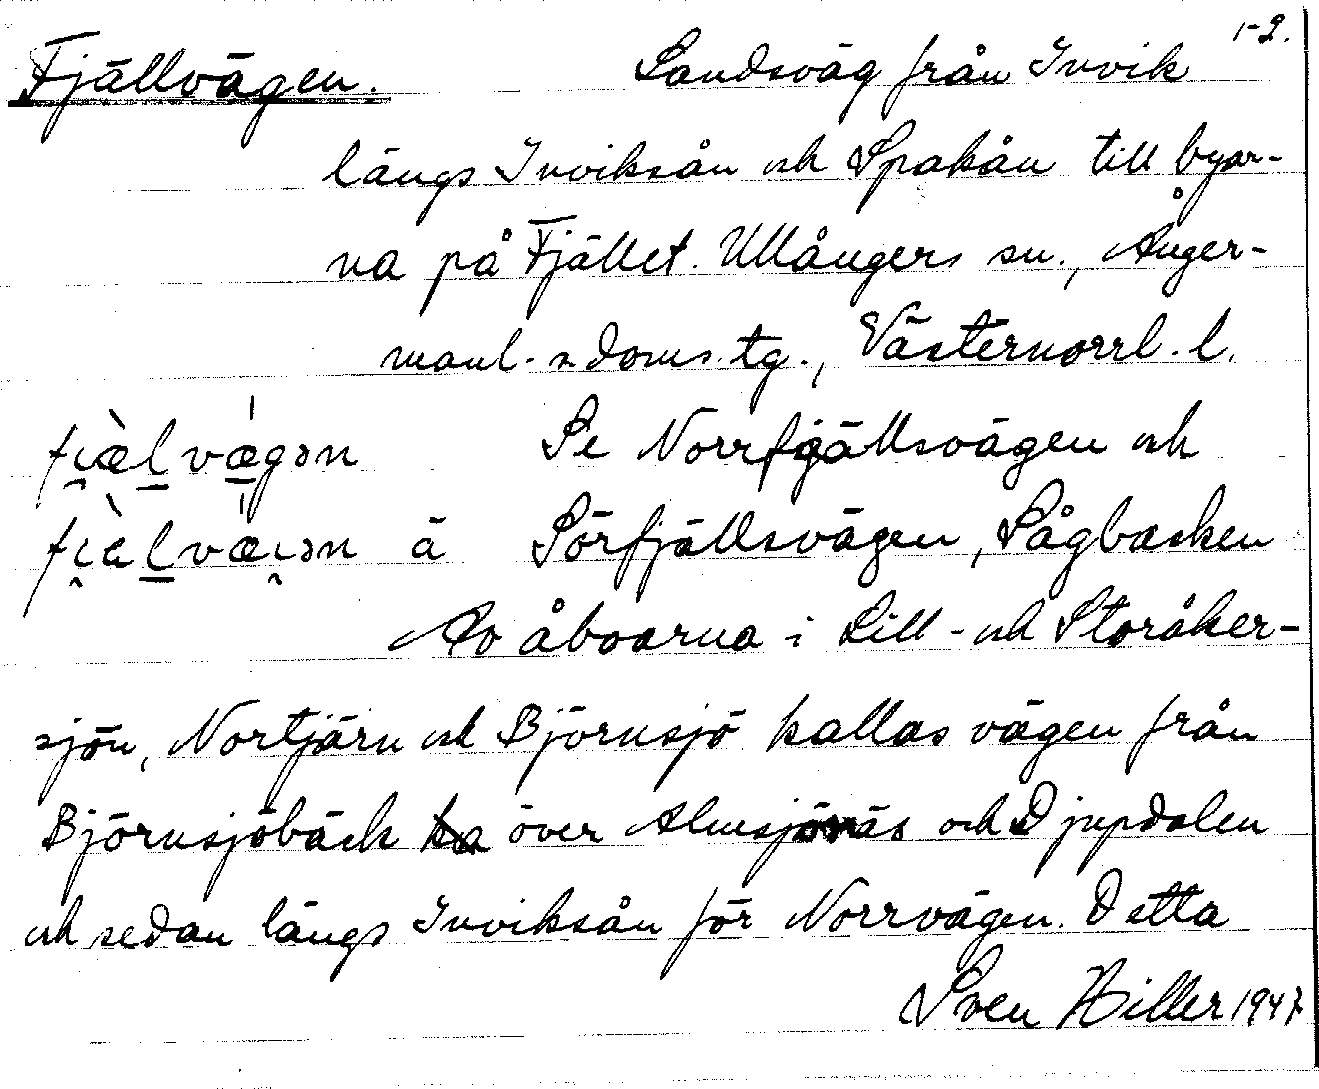 1-2.
Fjällvägen. Landsväg från Invik
längs Inviksån och Spakån till byar-
na på Fjället. Ullångers sn., Ånger-
manl. s. doms. tg., Västernorrl. l.
fi̯æ̀lvǽgən Se Norrfjällsvägen och
fi̯æ̀lvǽi̯ən ä Sörfjällsvägen, Sågbacken
Av åboarna i Lill- och Storåker-
sjön, Nortjärn och Björnsjö kallas vägen från
Björnsjöbäck över Almsjönäs och Djupdalen
och sedan längs Inviksån för Norrvägen. Detta
Sven Hiller 1947